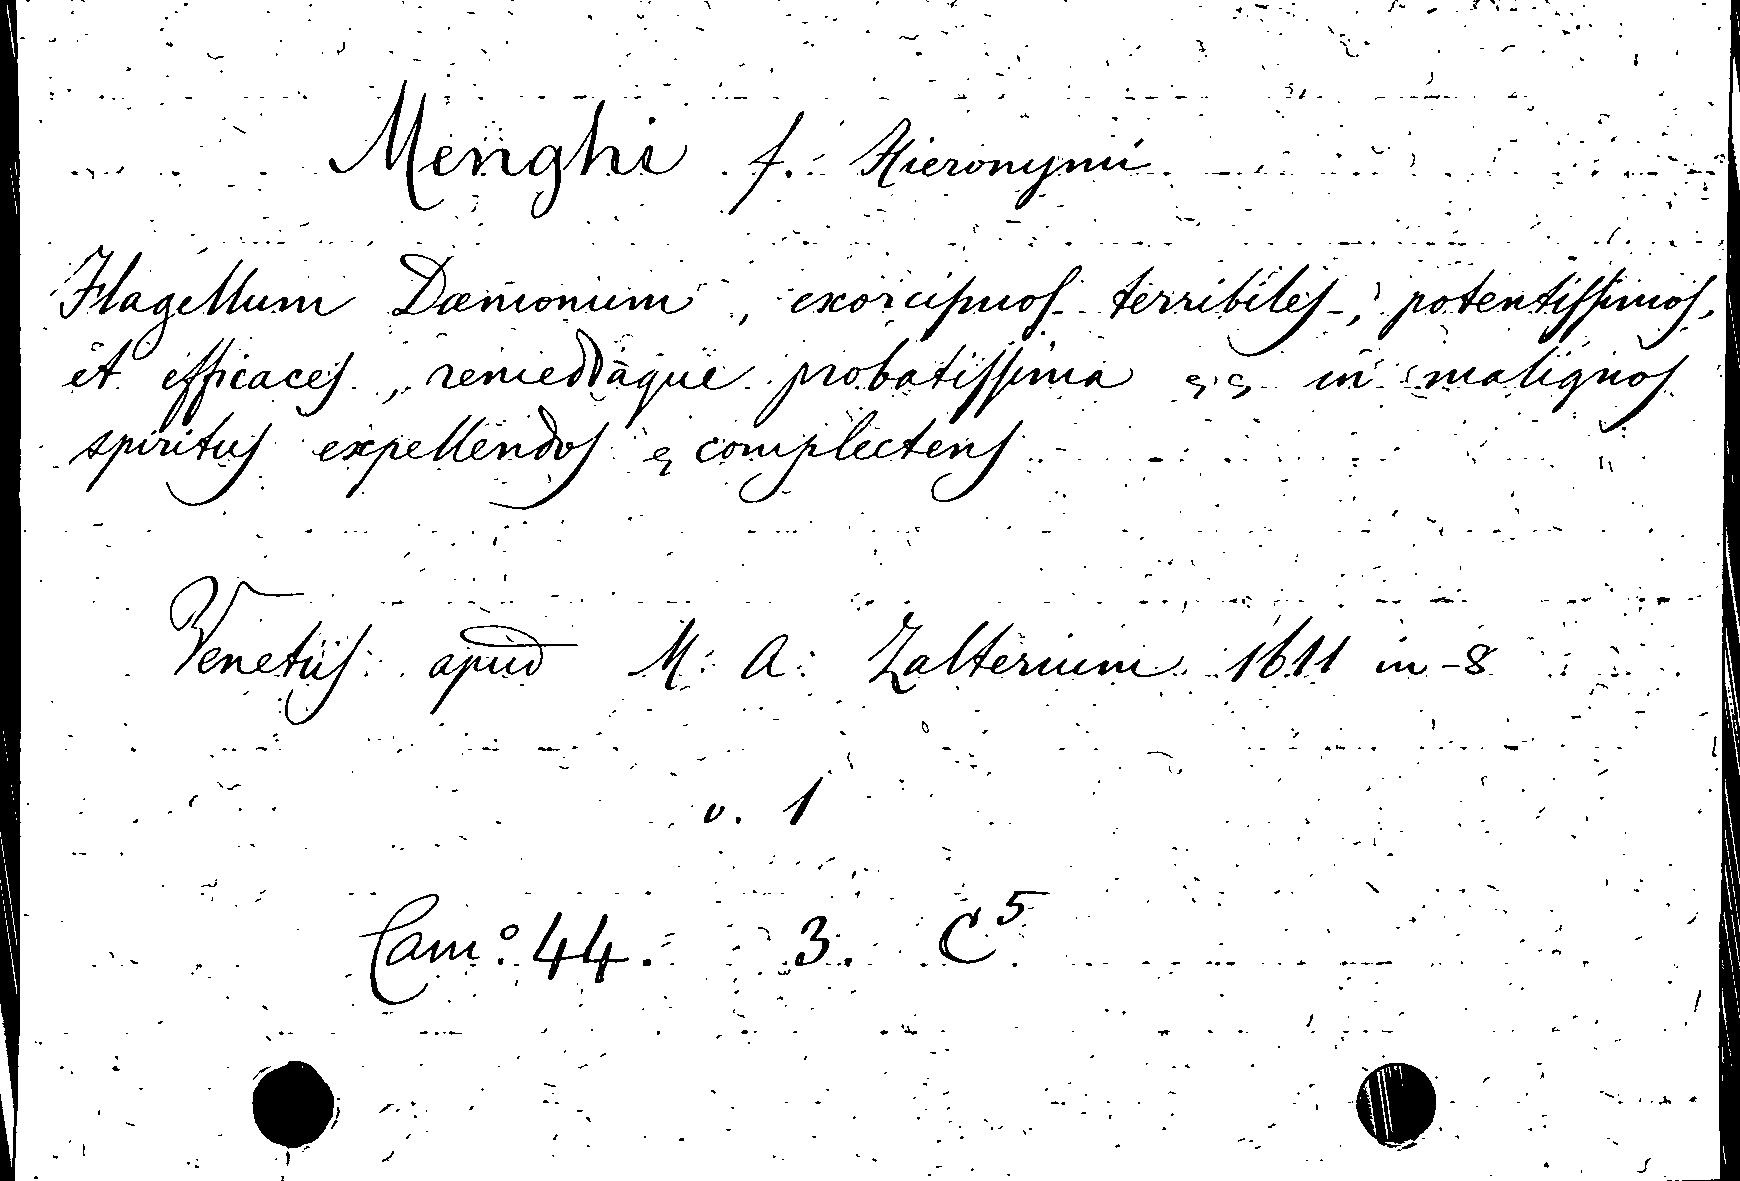 Menghi f. Hieronymi
Flagellum Dæmonum, exorcismos terribiles, potentissimos,
et efficaces, remediaque probatissima &c &c in malignos
spiritus expellendos & complectens
Venetiis apud M: A: Zalterium 1611 in-8
v. 1
Cam.º 44. 3. C⁵